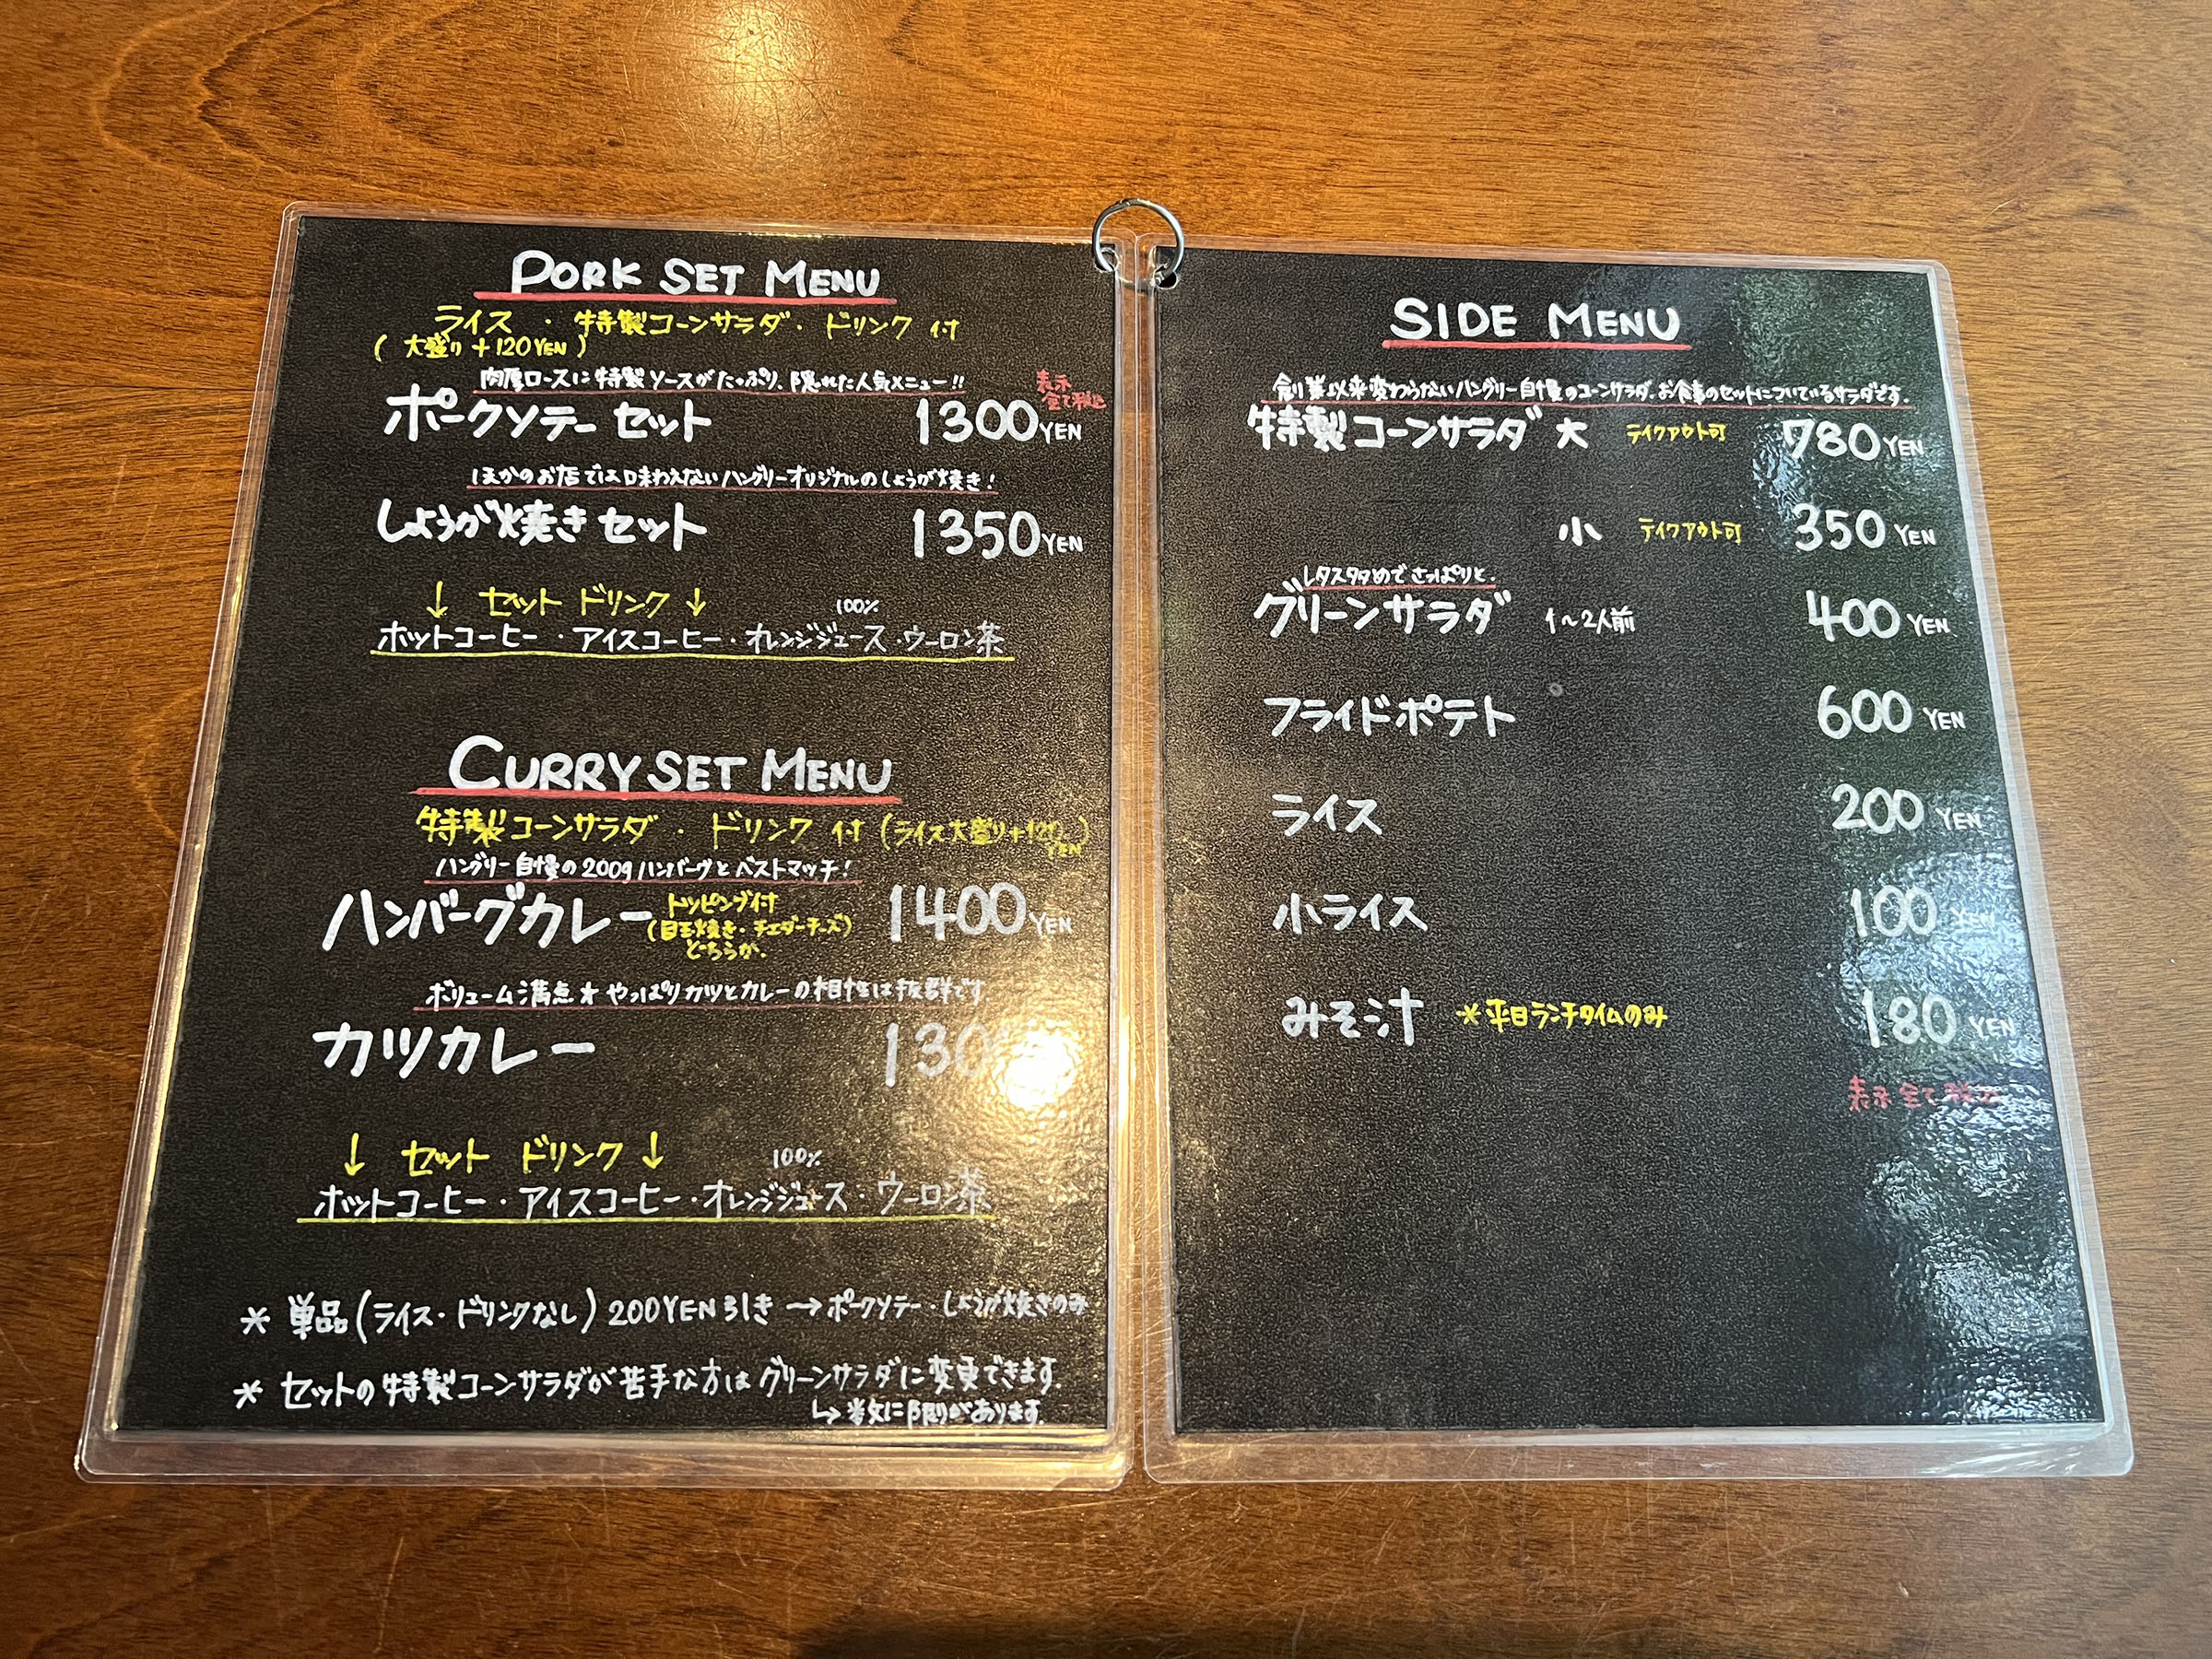 PORK SET MENU
ライス ・ 特製コーンサラダ ・ ドリンク 付
( 大盛り +120YEN )
肉厚ロースに特製ソースがたっぷり、隠れた人気メニュー!!
表示
全て税込
ポークソテー セット 1300YEN
ほかのお店では味わえないハングリーオリジナルのしょうが焼き!
しょうが焼き セット 1350YEN
↓ セット ドリンク ↓
100%
ホットコーヒー ・ アイスコーヒー ・ オレンジジュース ・ ウーロン茶
CURRY SET MENU
特製コーンサラダ ・ ドリンク 付 (ライス大盛り+120YEN)
ハングリー自慢の200gハンバーグとベストマッチ!
ハンバーグカレー 1400YEN
トッピング付
(目玉焼き・チェダーチーズ)
どちらか、
ボリューム満点★やっぱりカツとカレーの相性は抜群です
カツカレー 130
↓ セット ドリンク ↓
100%
ホットコーヒー ・ アイスコーヒー ・ オレンジジュース ・ ウーロン茶
* 単品(ライス・ドリンクなし)200YEN引き → ポークソテー・しょうが焼きのみ
* セットの特製コーンサラダが苦手な方はグリーンサラダに変更できます。
↳ 数に限りがあります。
SIDE MENU
創業以来変わらないハングリー自慢のコーンサラダ。お食事のセットについているサラダです。
特製コーンサラダ 大 テイクアウト可 780YEN
小 テイクアウト可 350YEN
レタスタタめでさっぱりと。
グリーンサラダ 1〜2人前 400YEN
フライドポテト 600YEN
ライス 200YEN
小ライス 100YEN
みそ汁 *平日ランチタイムのみ 180YEN
表示全て税込